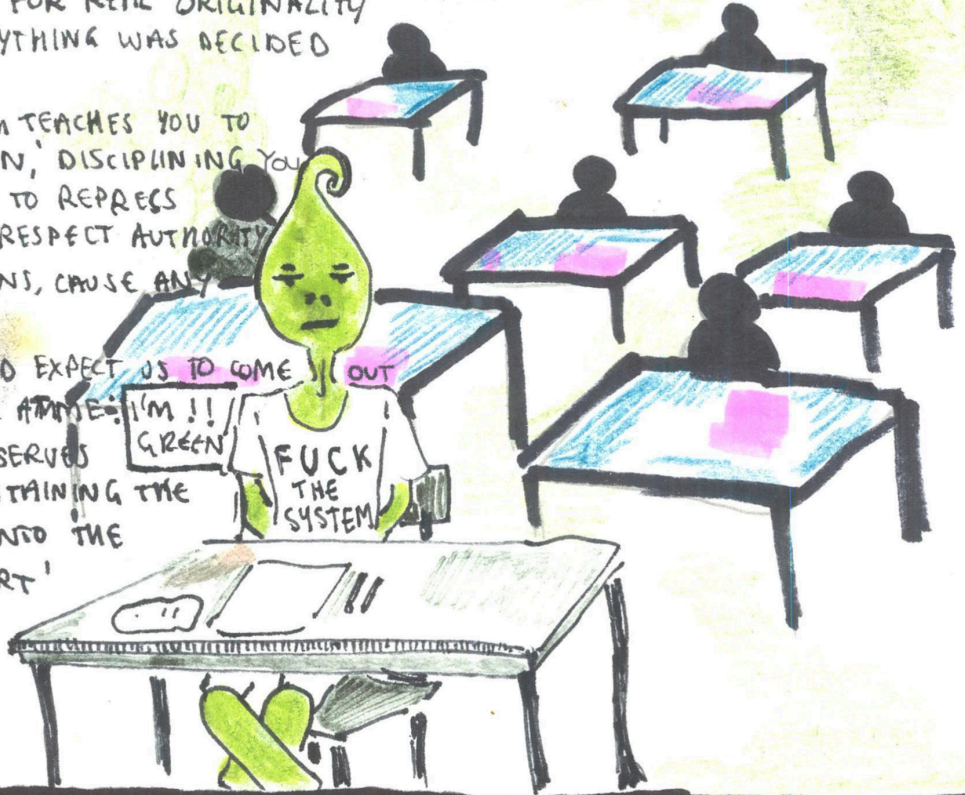 FOR REAL ORIGINALITY
YTHING WAS DECIDED
TEACHES YOU TO
N,' DISCIPLINING YOU
TO REPRESS
RESPECT AUTHORITY
NS, CAUSE ANY
D EXPECT US TO COME OUT
I'M !!
GREEN
SERVES
TAINING THE
INTO THE
RT'
FUCK
THE
SYSTEM